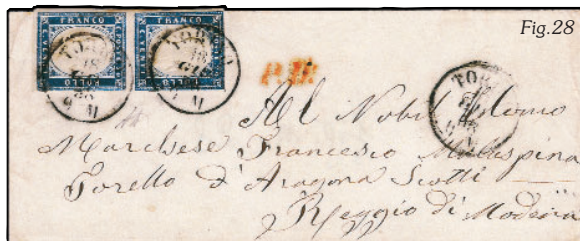 Fig.28
FRANCO FRANCO
BOLLO BOLLO
P.D.
Al Nobil Uomo
Marchese Francesco Malaspina
Torello d'Aragona Scotti
Reggio di Modena